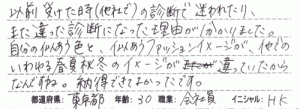 以前受けた時(他社で)の診断で迷われたり、
また違った診断になった理由が分かりました。
自分の似あう色と、似あうファッションイメージが、他での
いわゆる春夏秋冬のイメージが違っていたから
なんですね。納得できてよかったです。
都道府県: 東京都 年齢: 30 職業: 会社員 イニシャル: HK